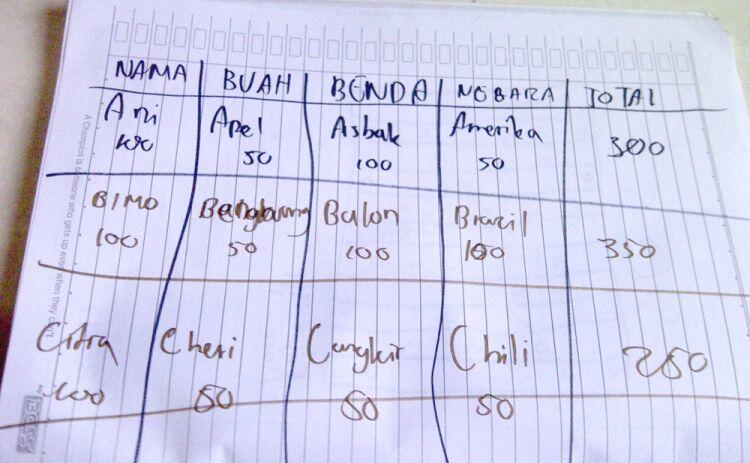 NAMA BUAH BENDA NEGARA TOTAL
Ani Apel Asbak Amerika 300
100 50 100 50
BIMO Bengkuang Balon Brazil 350
100 50 100 100
Citra Cheri Cangkir Chili 250
100 50 50 50
A Champion is someone who gets up even when they can't
BOSS